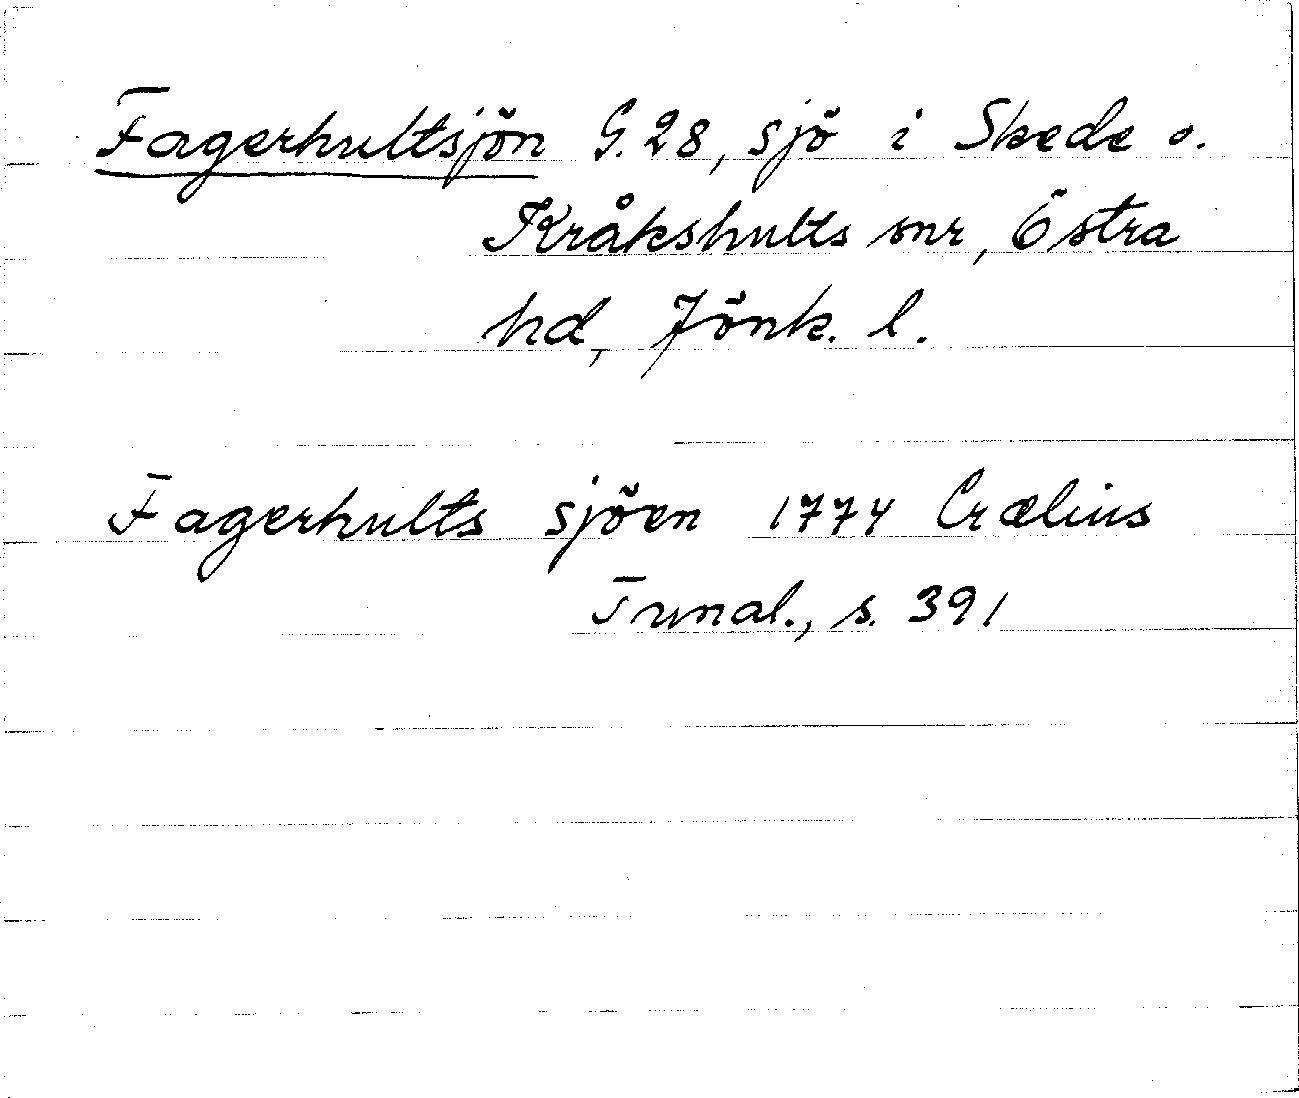 Fagerhultsjön G. 28, sjö i Skede o.
Kråkshults snr, Östra
hd, Jönk. l.
Fagerhults sjöen 1774 Crælius
Tunal., s. 391